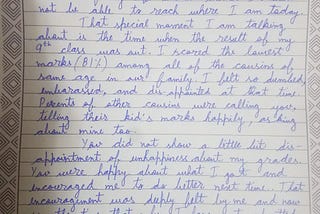 not be able to reach where I am today.
That special moment I am talking
about is the time when the result of my
9th class was out. I scored the lowest
marks (81%) among all of the cousins of
same age in our family. I felt so dumbed,
embarassed, and dis-appointed at that time.
Parents of other cousins were calling you,
telling their kid's marks happily, asking
about mine too.
You did not show a little bit dis-
appointment of unhappiness about my grades.
You were happy about what I got and
encouraged me to do better next time. That
encouragment was deeply felt by me and now